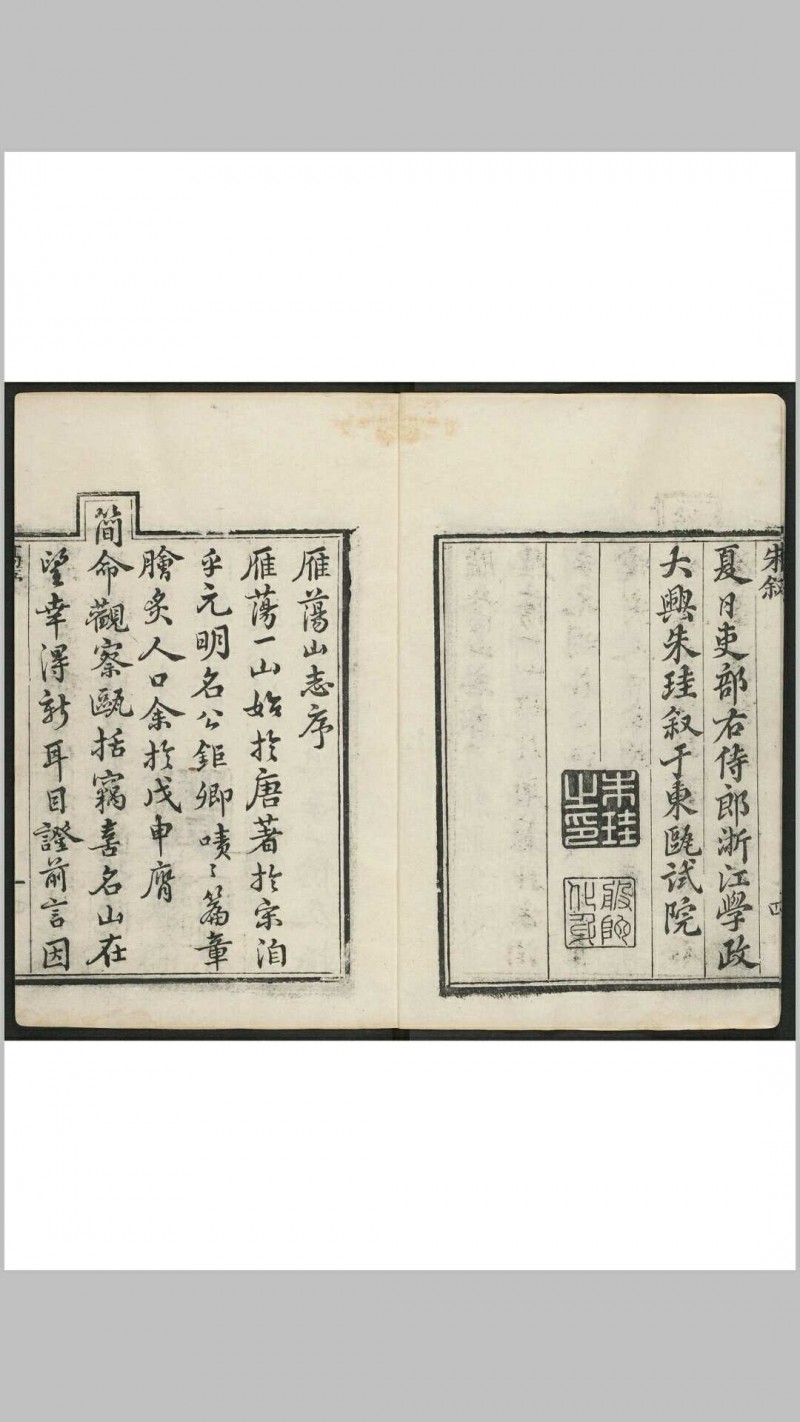 朱叙
夏日吏部右侍郎浙江學政
大興朱珪叙于東甌試院
朱珪之印
四
雁蕩山志序
雁蕩一山始於唐著於宋洎
乎元明名公鉅卿嘖〻篇章
膾炙人口余於戊申膺
簡命觀察甌括竊喜名山在
望幸得新耳目證前言因
一